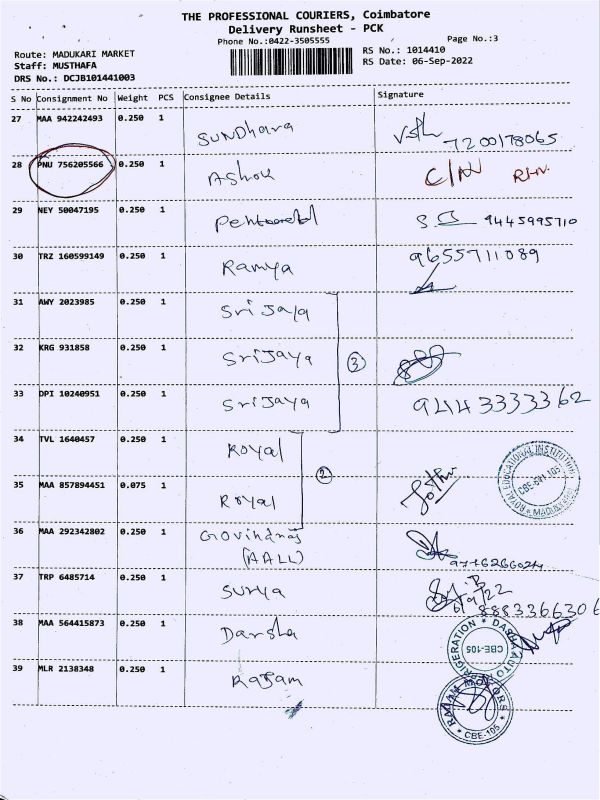 THE PROFESSIONAL COURIERS, Coimbatore
Delivery Runsheet - PCK
Phone No.:0422-3505555 Page No.:3
Route: MADUKARI MARKET RS No.: 1014410
Staff: MUSTHAFA RS Date: 06-Sep-2022
DRS No.: DCJB101441003
S No Consignment No Weight PCS Consignee Details Signature
27 MAA 942242493 0.250 1 SUNDhara 7200178065
28 PNU 756205566 0.250 1 AShok
29 NEY 50047195 0.250 1 9445995710
30 TRZ 160599149 0.250 1 Ramya 9655711089
31 AWY 2023985 0.250 1 Sri Jaya
32 KRG 931858 0.250 1 SriJaya 3
33 DPI 10240951 0.250 1 SriJaya 9444333362
34 TVL 1640457 0.250 1 Royal
2
35 MAA 857894451 0.075 1 Royal
ROYAL EDUCATIONAL INSTITUTION CBE-641 105 MADUKKARAI
36 MAA 292342802 0.250 1 Govindraj
(AALL)
37 TRP 6485714 0.250 1 Surya
6/9/22
8883366306
38 MAA 564415873 0.250 1 Darsha
CBE-105
39 MLR 2138348 0.250 1 Rajam
RAJAM MOTORS CBE-105